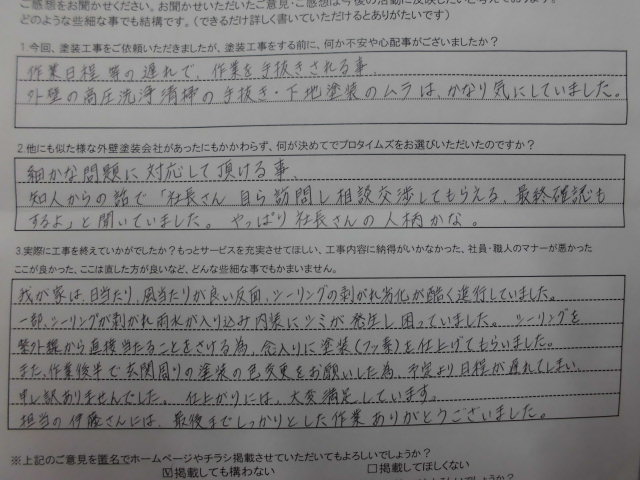 ご感想をお聞かせください。お聞かせいただいたご意見・ご感想は今後の活動に反映したいと考えております。
どのような些細な事でも結構です。（できるだけ詳しく書いていただけるとありがたいです）
1.今回、塗装工事をご依頼いただきましたが、塗装工事をする前に、何か不安や心配事がございましたか？
作業日程等の遅れで、作業を手抜きされる事、
外壁の高圧洗浄清掃の手抜き・下地塗装のムラは、かなり気にしていました。
2.他にも似た様な外壁塗装会社があったにもかかわらず、何が決めてでプロタイムズをお選びいただいたのですか？
細かな問題に対応して頂ける事、
知人からの話で「社長さん自ら訪問し相談交渉してもらえる、最終確認も
するよ」と聞いていました。やっぱり社長さんの人柄かな。
3.実際に工事を終えていかがでしたか？もっとサービスを充実させてほしい、工事内容に納得がいかなかった、社員・職人のマナーが悪かった
ここが良かった、ここは直した方が良いなど、どんな些細な事でもかまいません。
我が家は、日当たり、風当たりが良い反面、シーリングの剥がれ劣化が酷く進行していました。
一部、シーリングが剥がれ雨水が入り込み内装にシミが発生し困っていました。シーリングを
紫外線から直接当たることをさける為、念入りに塗装(フッ素)を仕上げてもらいました。
また、作業後半で玄関周りの塗装の色変更をお願いした為、予定より日程が遅れてしまい、
申し訳ありませんでした。仕上がりには、大変満足しています。
担当の伊藤さんには、最後までしっかりとした作業ありがとうございました。
※上記のご意見を匿名でホームページやチラシ掲載させていただいてもよろしいでしょうか？
☑掲載しても構わない　□掲載してほしくない